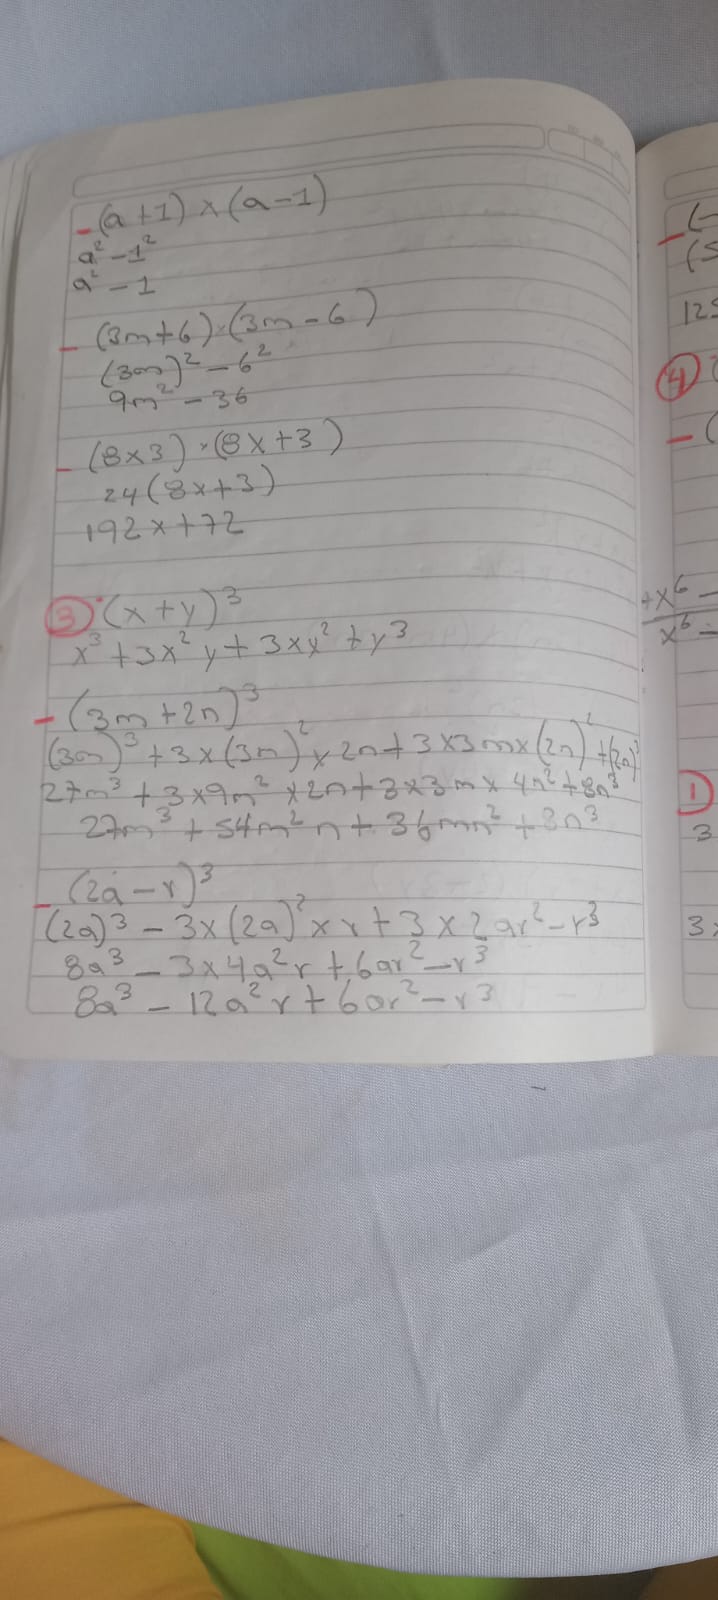 - (a+1)×(a-1)
a² - 1²
a² - 1
- (3m+6)·(3m-6)
(3m)² - 6²
9m² - 36
- (8x3)·(8x+3)
24(8x+3)
192x+72
③ (x+y)³
x³ + 3x²y + 3xy² + y³
- (3m+2n)³
(3m)³ + 3×(3m)²×2n + 3×3m×(2n)² + (2n)³
27m³ + 3×9m²×2n + 3×3m×4n² + 8n³
27m³ + 54m²n + 36mn² + 8n³
- (2a-r)³
(2a)³ - 3×(2a)²×r + 3×2ar² - r³
8a³ - 3×4a²r + 6ar² - r³
8a³ - 12a²r + 6ar² - r³
- (-
(5
125
④
- (
+x⁶ -
x⁶ -
①
3
3